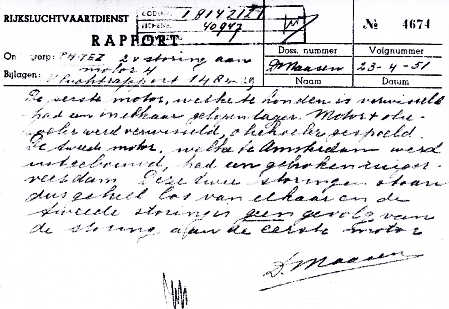 RIJKSLUCHTVAARTDIENST
RAPPORT
CODE
18142121
40947
No 4674
Onderwerp: PH-TEZ 2x storing aan
motor 4
Bijlagen: Vluchtrapport 148
Doss. nummer
Volgnummer
Dr Maasen
23-4-51
Naam
Datum
De eerste motor, welke te Londen is verwisseld
had een onklaar gelopen lager. Motor + olie-
koeler werd verwisseld, oliekoeler gespoeld.
De tweede motor, welke te Amsterdam werd
uitgebouwd, had een gebroken zuiger-
veesdam. Deze twee storingen staan
dus geheel los van elkaar en de
tweede storing is geen gevolg van
de storing aan de eerste motor
D. Maasen